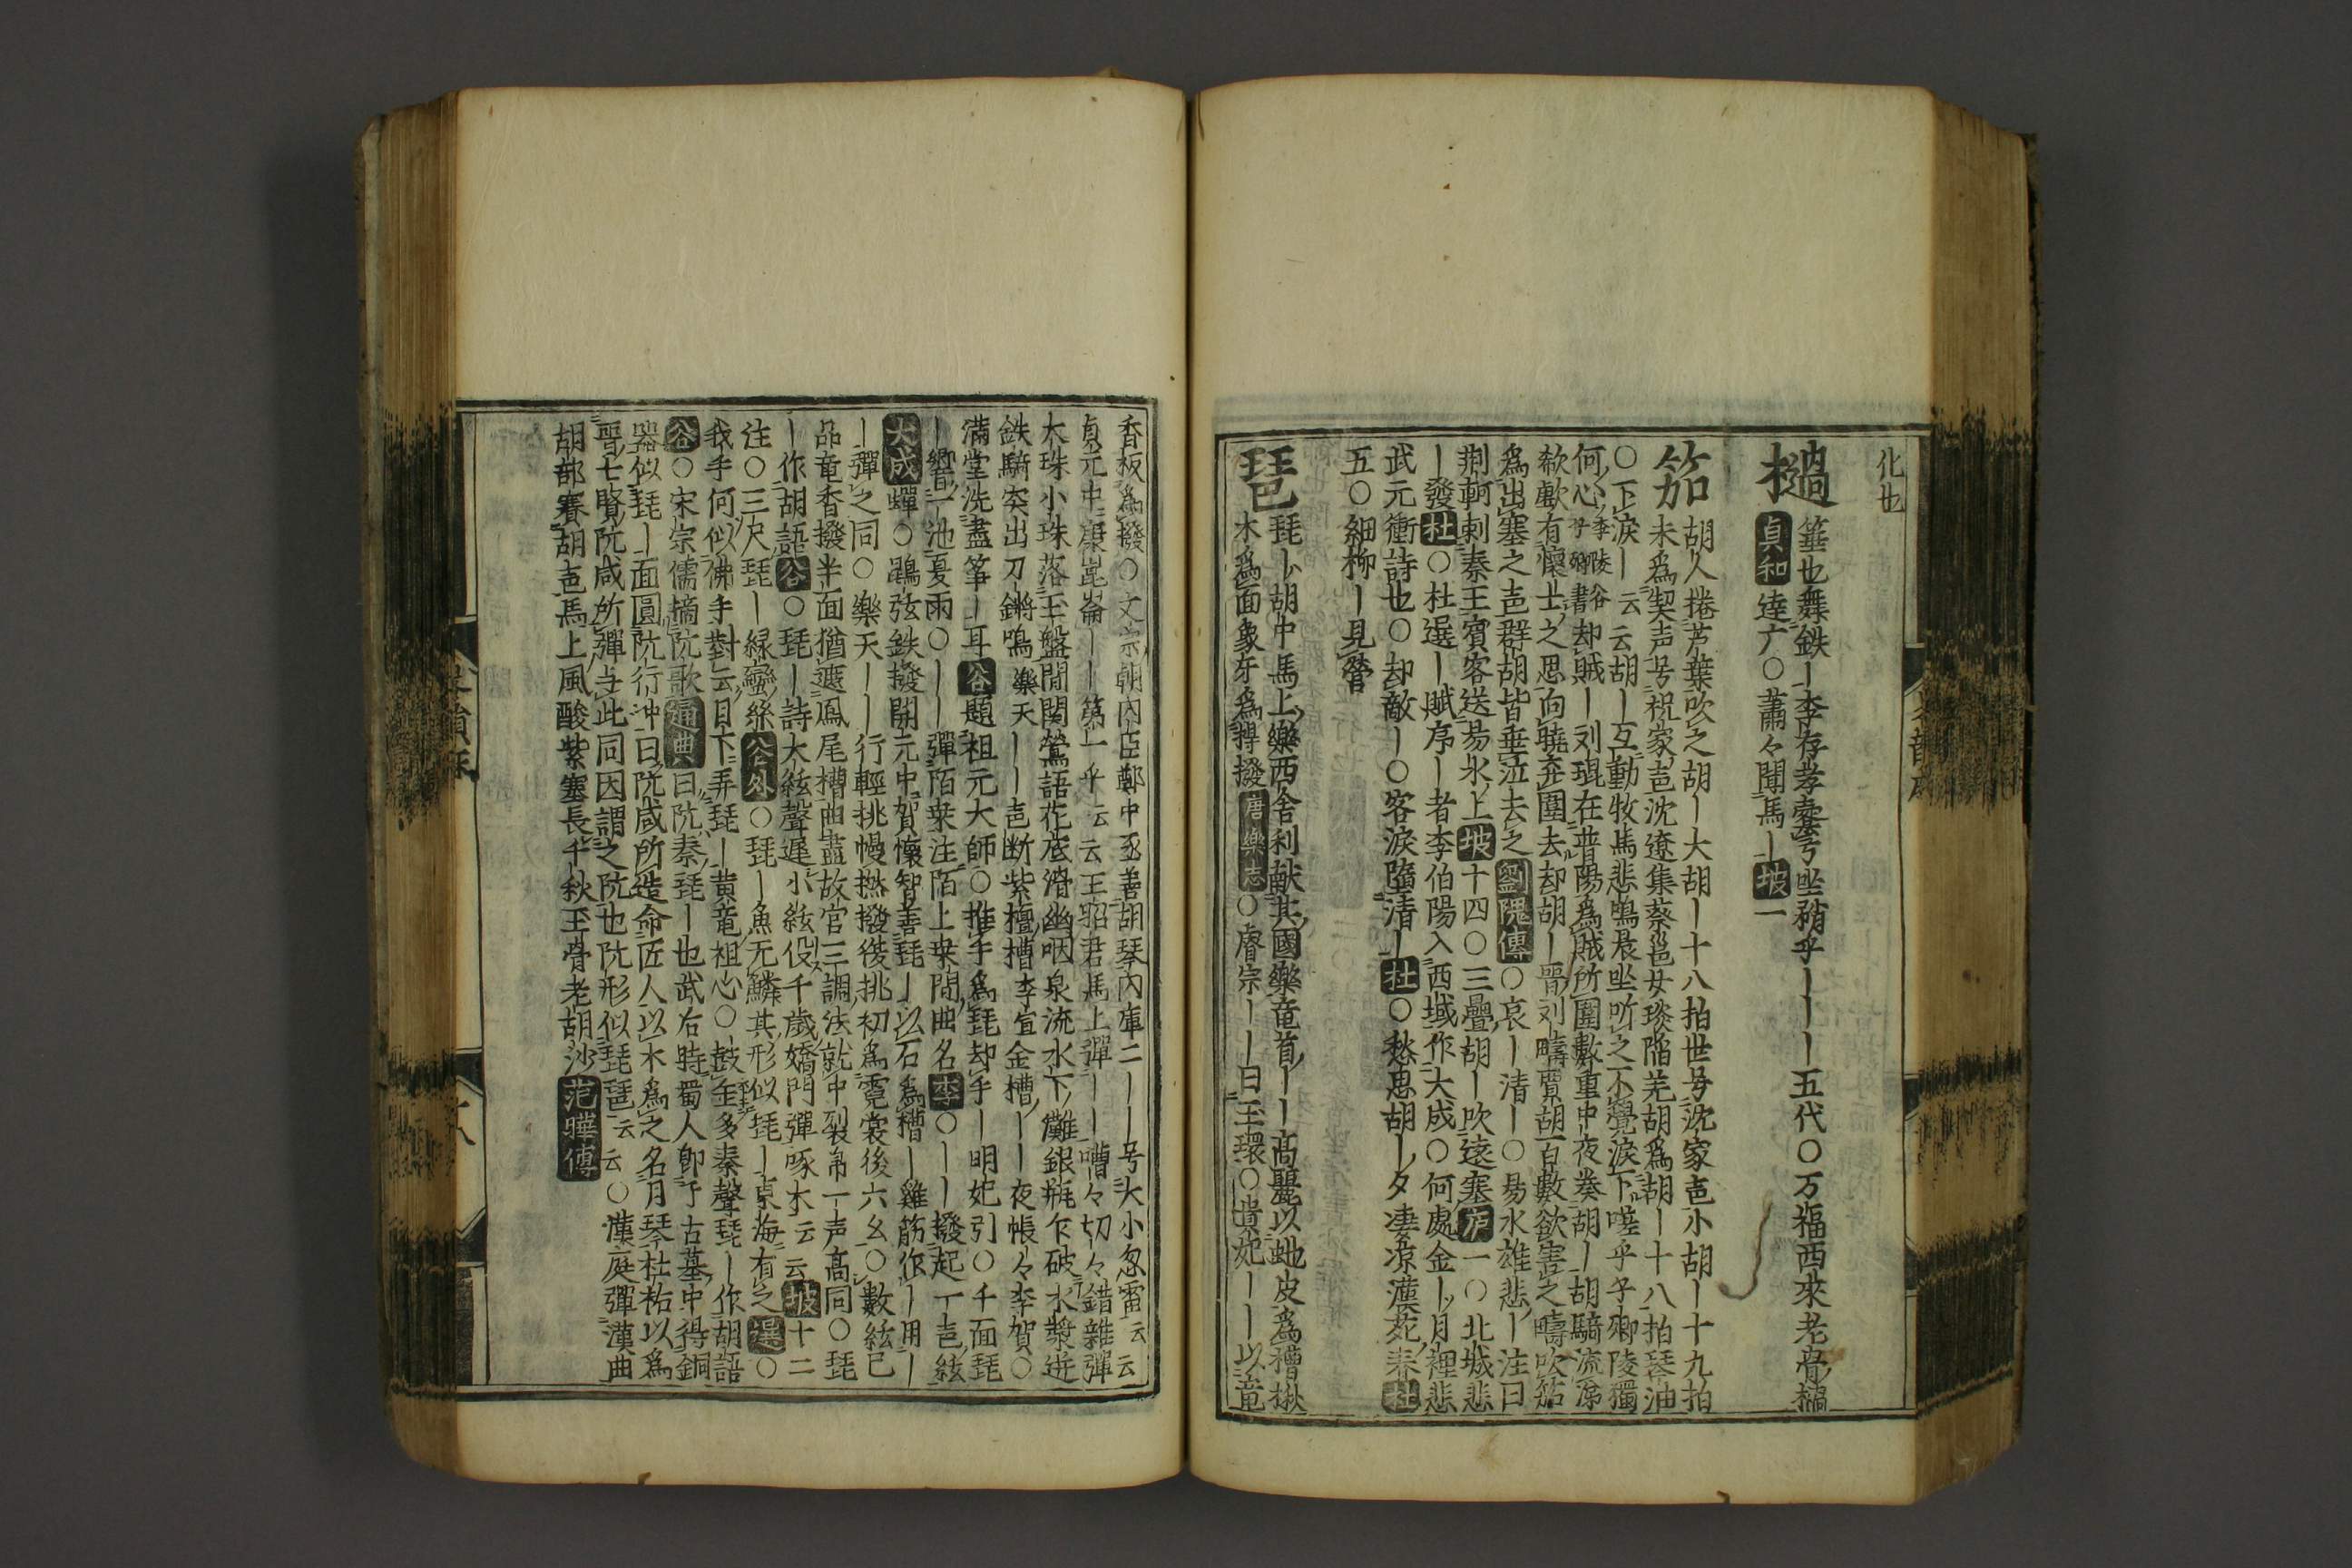 化也
檛
箠也舞鉄｜李存孝槖弓坐矟手｜｜｜五代〇万福西來老骨檛
貞和 逵广〇蕭々聞馬｜坡一
笳
胡人捲芦葉吹之胡｜大胡｜十八拍世号沈家声小胡｜十九拍
末為契声号祝家声沈遼集蔡邕女琰陥羌胡為胡｜十八拍琴油
〇下涙｜云云胡｜互動牧馬悲鳴晨坐听之不覚涙下嗟乎子卿陵獨
何心李陵答子卿書却賊｜刘琨在晋陽為賊所圍數重中夜奏胡｜胡騎流涕
欷歔有懐土之思向曉弃圍去却胡｜晋刘疇賈胡百數欲害之疇吹笳
為出塞之声群胡皆垂泣去之劉隗傳〇哀｜清｜〇易水雄悲｜注曰
荆軻刺秦王賓客送易水上坡十四〇三疊胡｜吹遠塞〇北城悲
｜發杜〇杜選｜賦序｜者李伯陽入西域作大成〇何處金｜月裡悲
武元衝詩也〇却敵｜〇客涙墮清｜杜〇愁思胡｜夕凄凉漢苑春杜
五〇細柳｜見營
琵
琵｜胡中馬上樂西舍利献其國樂竜首｜｜高麗以虵皮為槽楸
木為面象牙為捍撥唐樂志〇睿宗｜｜曰玉環〇貴妃｜｜以竜
香板為撥〇文宗朝内臣鄭中丞善胡琴内庫二｜｜号大小忽雷云云
貞元中康崑崙｜｜第一乎云云王昭君馬上彈｜｜嘈々切々錯雜彈
大珠小珠落玉盤間関鶯語花底滑幽咽泉流水下灘銀瓶乍破水漿迸
鉄騎突出刀鎗鳴樂天｜｜声断紫檀槽李宣金槽｜｜夜帳々李賀〇
滿堂洗盡筝｜耳谷題祖元大師〇推手為琵却手｜明妃引〇千面琵
｜響一池憂雨〇｜｜彈陌桒注陌上桒間曲名李〇｜｜撥起一声絃
大成蟬〇鵾弦鉄撥開元中賀懐智善琵｜以石為槽｜雞筋作｜用｜
｜彈之同〇樂天｜｜行輕挑慢撚撥後挑初為霓裳後六幺〇數絃已
品竜香撥半面猶遮鳳尾槽曲盡故官三調法就中裂帛一声髙同〇琵
｜作胡語谷〇琵｜詩大絃聲遲小絃促千歲嬌門彈啄木云云坡十二
注〇三尺琵｜緑蠻絲谷外〇琵｜魚无鱗其形似琵｜東海有之選〇
我手何似佛手對云月下弄琵｜黄竜祖心〇鼓金多秦聲琵｜作胡語
谷〇宋宗儒摘阮歌通典曰阮秦琵｜也武后時蜀人蒯于古墓中得銅
器似琵｜面圓阮行冲曰阮咸所造命匠人以木為之名月琴杜祐以為
晋七賢阮咸所彈与此同因謂之阮也阮形似琵琶云云〇漢庭彈漢曲
胡部賽胡声馬上風酸紫塞長千秋玉骨老胡沙范曄傳